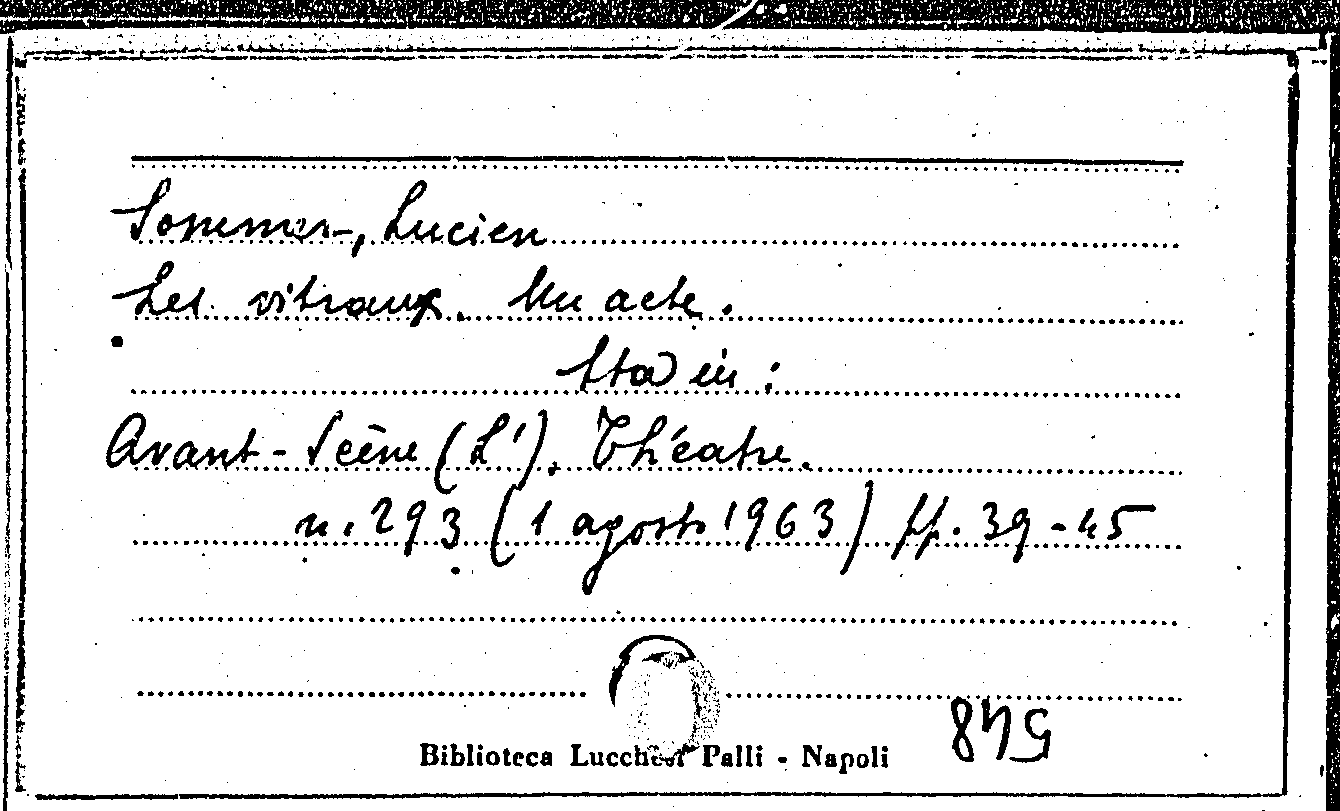 Sommer, Lucien
Les vitraux. Un acte.
Sta in:
Avant-Scène (L'). Théatre.
n. 293 (1 agosto 1963) pp. 39-45
Biblioteca Lucchesi Palli - Napoli
548